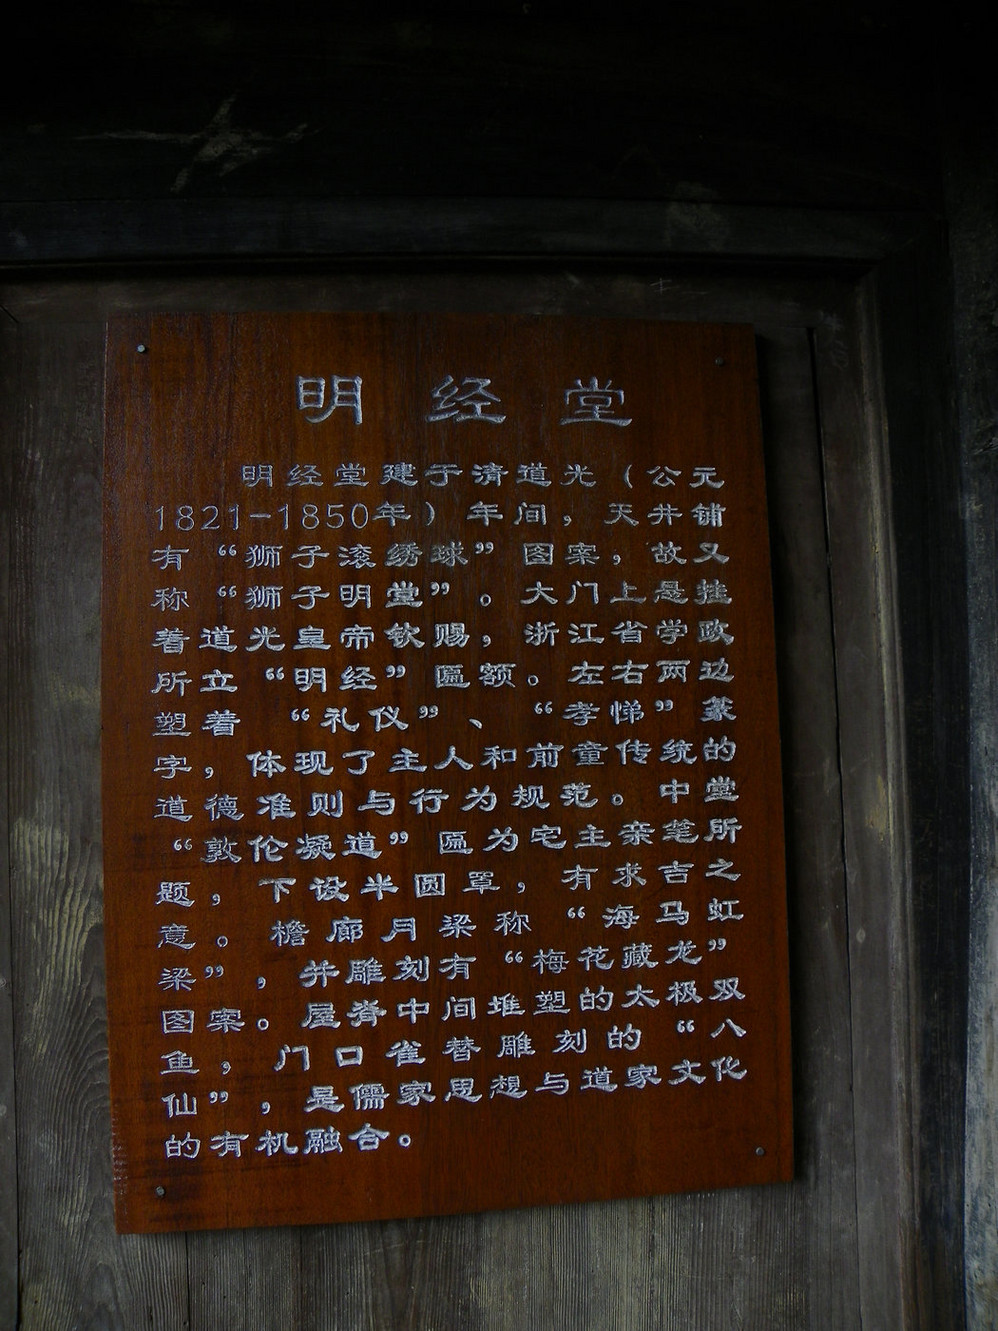 明经堂
明经堂建于清道光（公元
1821-1850年）年间，天井铺
有“狮子滚绣球”图案，故又
称“狮子明堂”。大门上悬挂
着道光皇帝钦赐，浙江省学政
所立“明经”匾额。左右两边
塑着“礼仪”、“孝悌”篆
字，体现了主人和前童传统的
道德准则与行为规范。中堂
“敦伦凝道”匾为宅主亲笔所
题，下设半圆罩，有求吉之
意。檐廊月梁称“海马虹
梁”，并雕刻有“梅花藏龙”
图案。屋脊中间堆塑的太极双
鱼，门口雀替雕刻的“八
仙”，是儒家思想与道家文化
的有机融合。